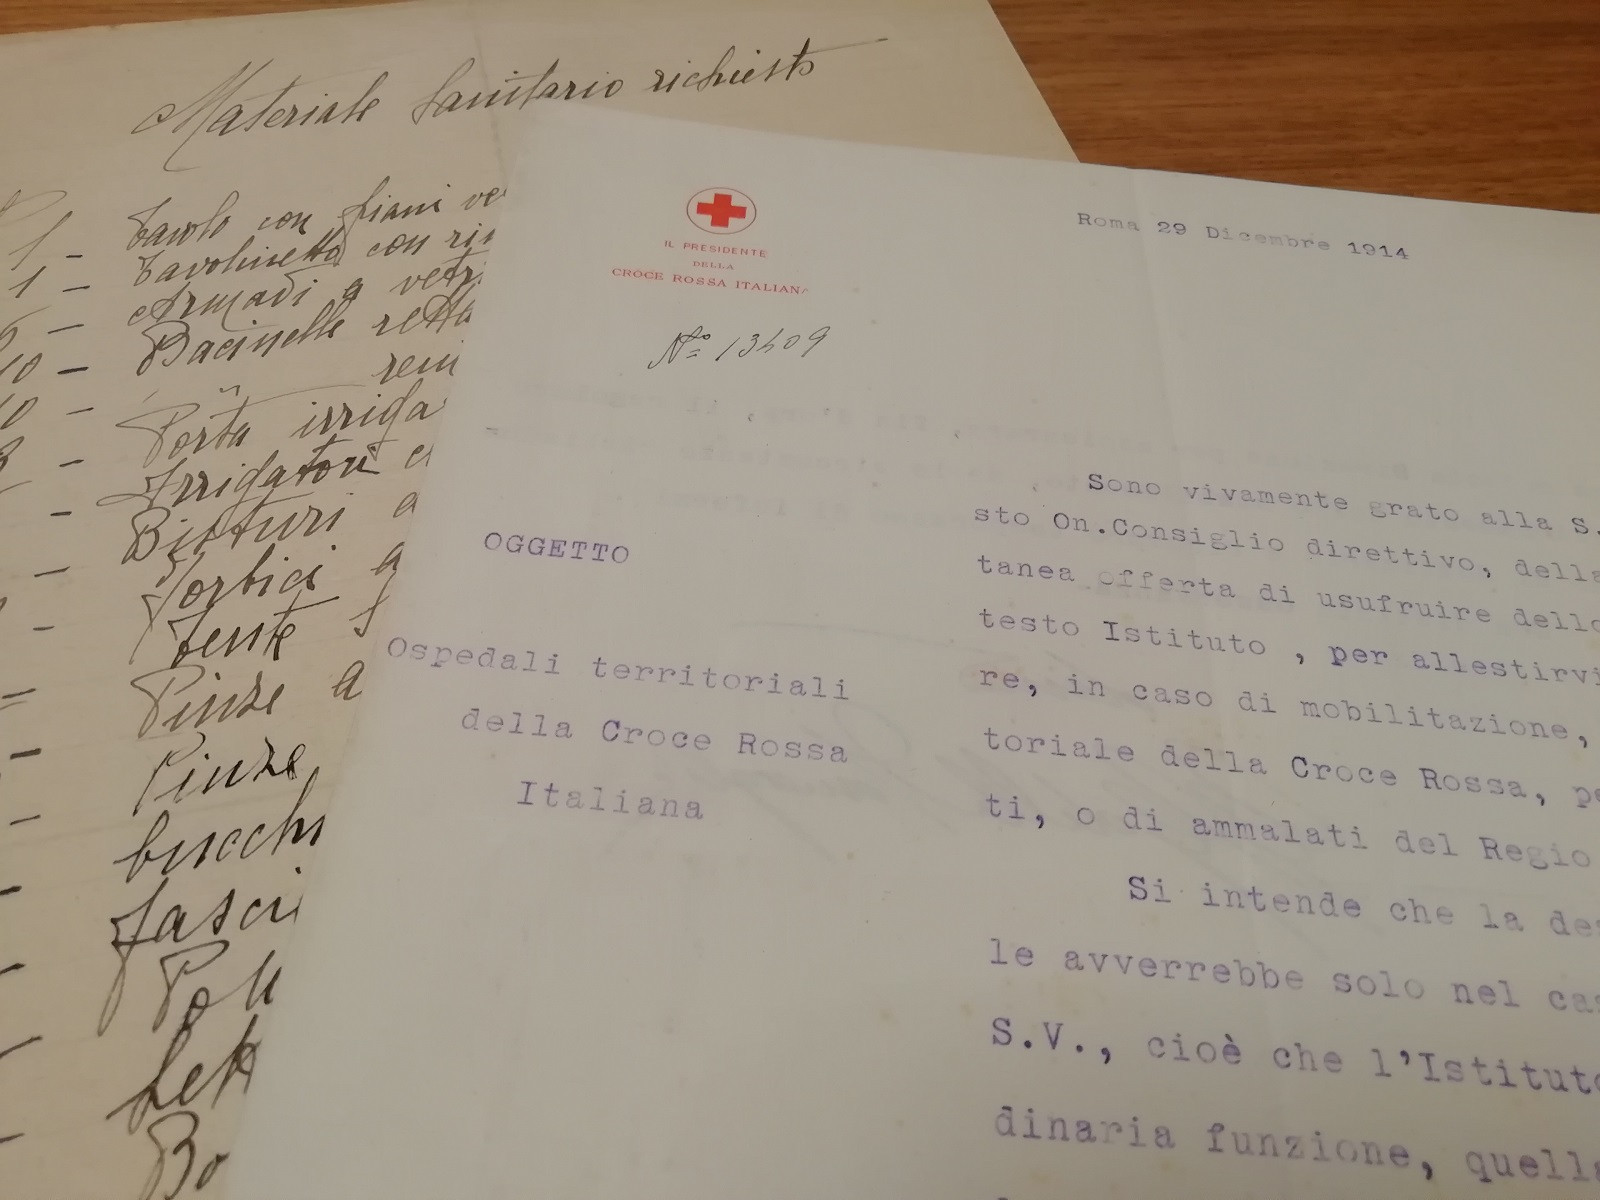 Materiale Sanitario richiesto
1 - Tavolo con piani ve
1 - Tavolinetto con ri
- Armadi a vetr
10 - Bacinelle retta
reni
10 - "
- Porta irriga
- Irrigatori
- Bisturi a
- Forbici a
Tente
= Pinze a
- Pinze
- bucchi
- fasci
-
-
- Bo
IL PRESIDENTE
DELLA
CROCE ROSSA ITALIANA
Nº 13409
Roma 29 Dicembre 1914
OGGETTO
Ospedali territoriali
della Croce Rossa
Italiana
Sono vivamente grato alla S.
sto On.Consiglio direttivo, della
tanea offerta di usufruire dello
testo Istituto , per allestirvi
re, in caso di mobilitazione,
toriale della Croce Rossa, pe
ti, o di ammalati del Regio
Si intende che la des
le avverrebbe solo nel cas
S.V., cioè che l'Istituto
dinaria funzione, quella